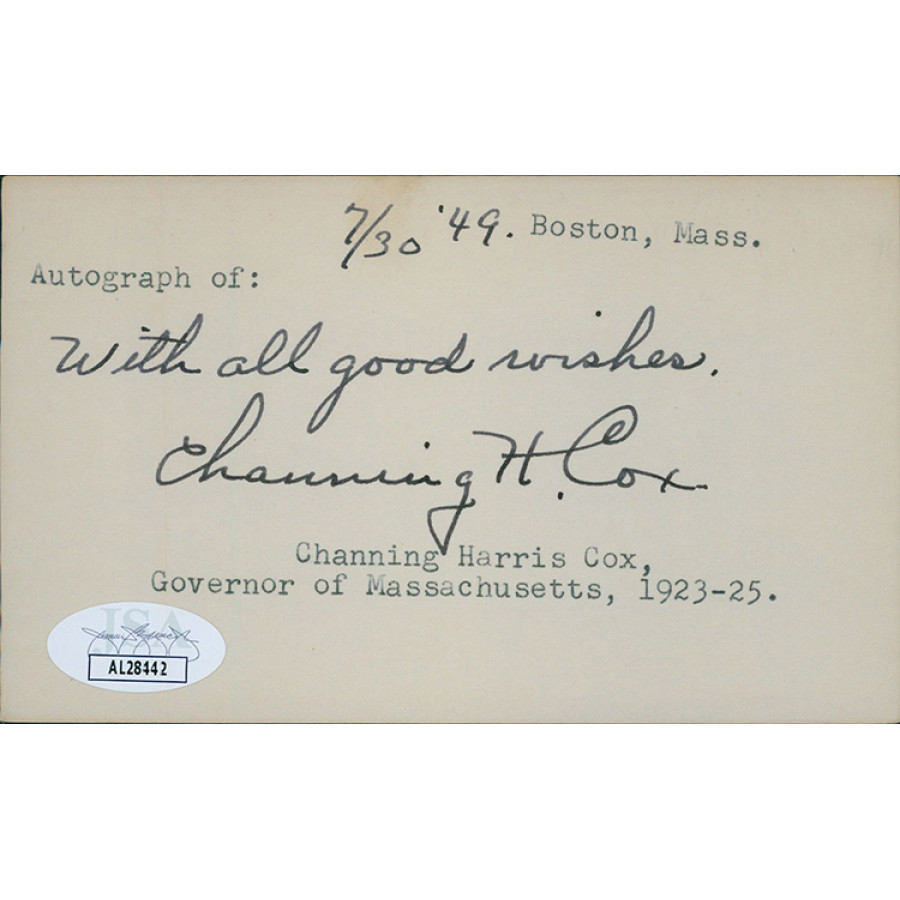 7/30 '49. Boston, Mass.
Autograph of:
With all good wishes.
Channing H. Cox
Channing Harris Cox,
Governor of Massachusetts, 1923-25.
JSA
AL28442